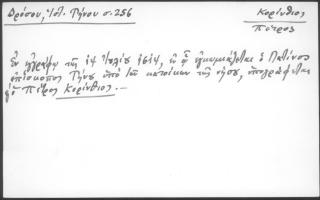 Δρόσου, Ἱστ. Τήνου σ. 256
Κορίνθιος
Πέτρος
Ἐν ἐγγράφῳ τῆς Ἰουλίου ἐν ᾧ ὁ Λατῖνος
ἐπίσκοπος Τήνου ὑπὸ τῶν κατοίκων τῆς νήσου, ὑπογράφεται
ὁ Πέτρος Κορίνθιος. —